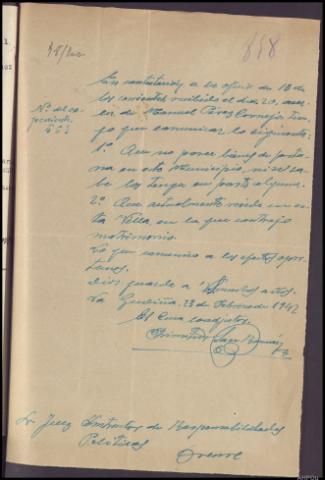 858
En contestación a su oficio de 18 de
los corrientes recibido el dia 20, acer-
ca de Manuel Pérez Cornejo ten-
go que comunicar lo siguiente:
Nº del ex-
pediente
563
1º. Que no posee bienes de fortu-
na en este Municipio, ni se sa-
be los tenga en parte alguna.
2º. Que actualmente reside en es-
ta Villa, en la que contrajo
matrimonio.
Lo que comunico a los efectos opor-
tunos.
Dios guarde a V. muchos años.
La Gudiña, 23 de Febrero de 1942
El Cura
Sr. Juez Instructor de Responsabilidades
Políticas
Orense
AHPOu